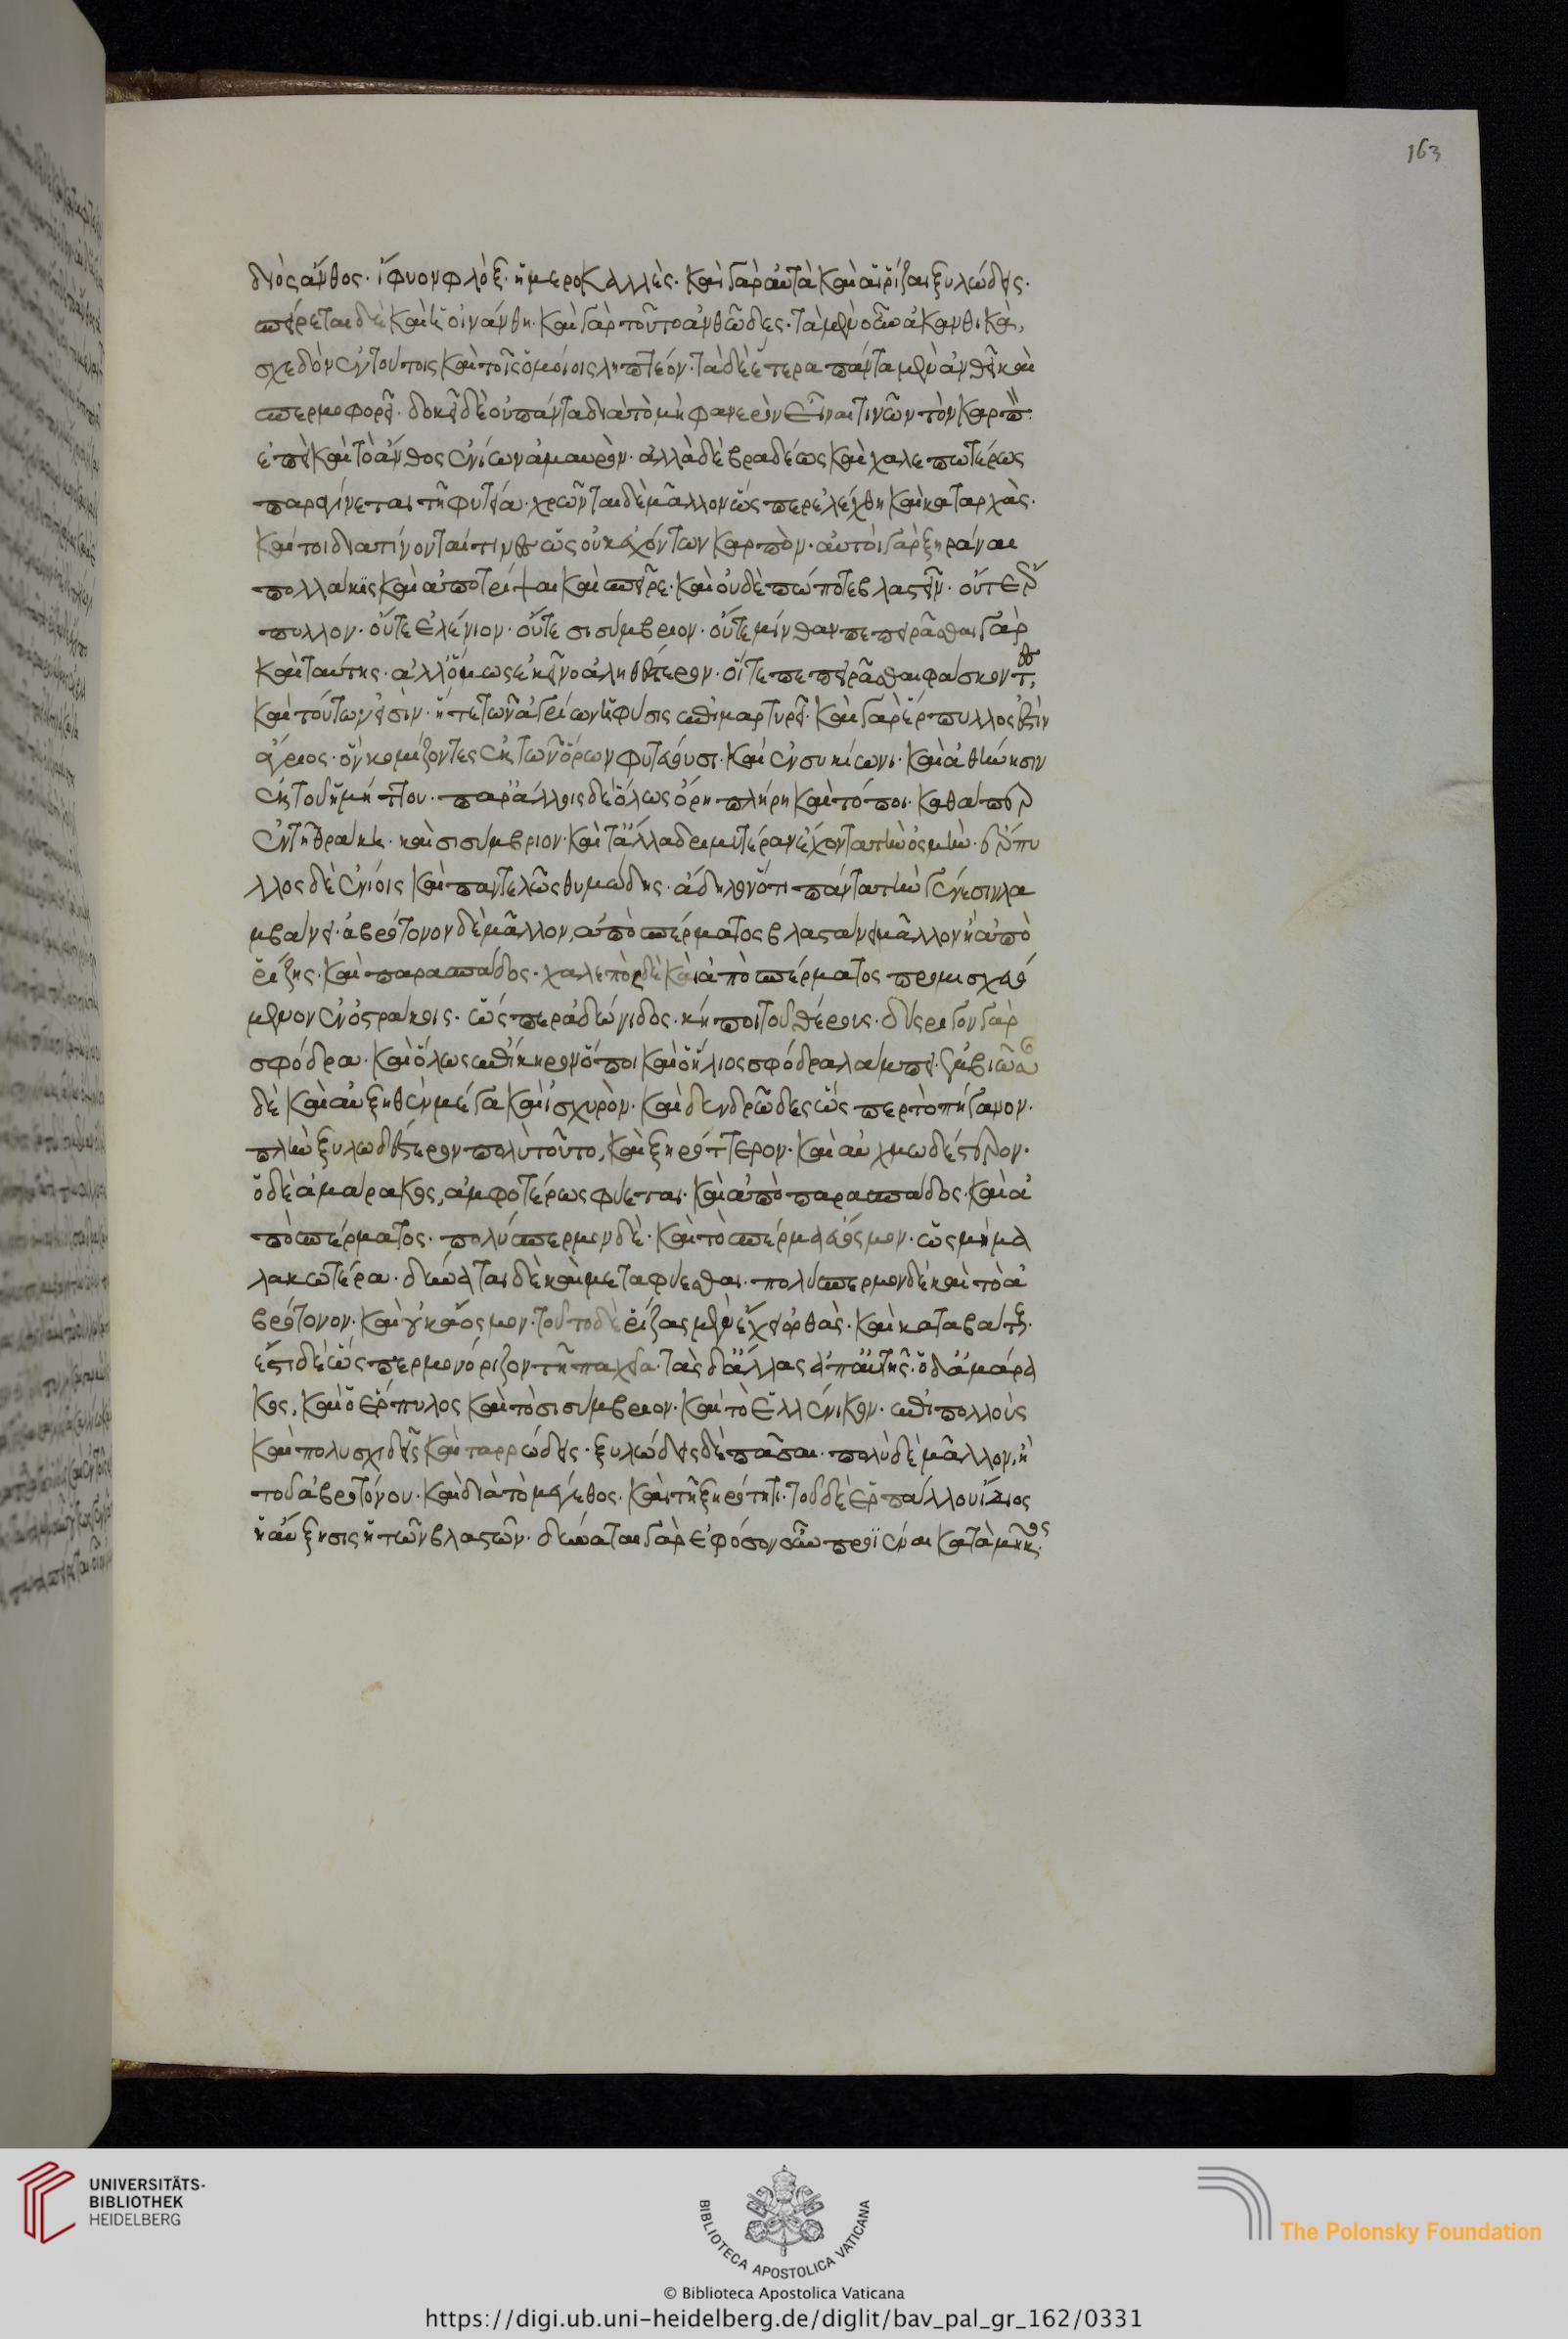 163
διὸς ἄνθος· ἴφυον φλὸξ· ἡμεροκαλλὲς· καὶ γὰρ αὐτὰ καὶ αἱ ῥίζαι ξυλώδεις·
σπείρεται δὲ καὶ ἡ οἰνάνθη· καὶ γὰρ τοῦτο ἀνθῶδες· τὰ μὲν οὖν ἀκανθικὰ,
σχεδὸν ἐν τούτοις καὶ τοῖς ὁμοίοις ληπτέον· τὰ δὲ ἕτερα πάντα μὲν ἀνθεῖ καὶ
σπερμοφορεῖ· δοκεῖ δὲ οὐ πάντα διὰ τὸ μὴ φανερὸν εἶναι τινῶν τὸν καρπὸ·
ἐπεὶ καὶ τὸ ἄνθος ἐνίων ἀμαυρὸν· ἀλλὰ δὲ βραδέως καὶ χαλεπωτέρως
παραγίνεται τῆ φυτεία· χρῶνται δὲ μᾶλλον ὥς περ ἐλέχθη καὶ καταρχὰς·
καίτοι διατίνονταί τινες ὡς οὐκ ἐχόντων καρπὸν· αὐτοὶ γὰρ ξηράναι
πολλακις καὶ ἀποτρίψαι καὶ σπεῖραι· καὶ οὐδὲ πώποτε βλαστεῖν· οὔτε ἕρ
πυλλον· οὔτε ἑλένιον· οὔτε σισύμβριον· οὔτε μίνθαν πεπειρᾶσθαι γὰρ
καὶ ταύτης· ἀλλ' ὅμως ἐκεῖνο ἀληθέστερον· οἵ τε πεπειρᾶσθαι φάσκοντες
καὶ τούτων εἰσὶν· ἥ τε τῶν ἀγρίων ἡ φύσις ἐπιμαρτυρεῖ· καὶ γὰρ ἕρπυλλος ἐστὶν
ἄγριος· ὃν κομίζοντες ἐκ τῶν ὄρων φυτεύουσι· καὶ ἐν συκίωνι· καὶ ἀθήνησιν
ἐκ τοῦ ὑμήττου· παρ' ἄλλοις δὲ ὅλως ὄρη πλήρη καὶ τόποι· καθάπερ
ἐν τῆ θράκη· καὶ σισύμβριον· καὶ τἄλλα δριμυτέραν ἔχοντα τὴν ὀσμὴν· ἕρπυ
λλος δὲ ἐνίοις καὶ παντελῶς θυμώδης· ἄδηλον ὅτι πάντα τὴν γένεσιν λα
μβάνει· ἀβρότονον δὲ μᾶλλον, ἀπὸ σπέρματος βλαστάνει μᾶλλον ἢ ἀπὸ
ῥίζης· καὶ παρασπάδος· χαλεπὸν δὲ καὶ ἀπὸ σπέρματος προμοσχευό
μενον ἐν ὀστράκοις· ὥς περ ἀδώνιδος· κήποι τοῦ θέρους· δύςριγον γὰρ
σφόδρα· καὶ ὅλως ἐπίκηρον ὅπου καὶ ὁ ἥλιος σφόδρα λάμπει·
δὲ καὶ αὐξηθὲν μέγα καὶ ἰσχυρὸν· καὶ δενδρῶδες ὥς περ τὸ πήγανον·
πλὴν ξυλωδέστερον πολὺ τοῦτο, καὶ ξηρότερον· καὶ αὐχμωδέστερον·
ὁ δὲ ἀμάρακος, ἀμφοτέρως φύεται· καὶ ἀπὸ παρασπάδος· καὶ ἀ
πὸ σπέρματος· πολύσπερμον δὲ· καὶ τὸ σπέρμα εὔοσμον· ὀσμῆ μα
λακωτέρα· δύναται δὲ καὶ μεταφύεσθαι· πολύσπερμον δὲ καὶ τὸ ἀ
βρότονον· καὶ οὐκ ἄοσμον· τοῦτο δὲ ῥίζας μὲν ἔχει ὀρθὰς· καὶ κατὰ βάθους·
ἔστι δὲ ὥς περ μονόριζον τῆ παχεία· τὰς δ' ἄλλας ἀπ' αὐτῆς· ὁ δ' ἀμάρα
κος, καὶ ὁ ἕρπυλος καὶ τὸ σισύμβριον· καὶ τὸ ἑλλένικον· ἐπιπολλοὺς
καὶ πολυσχιδεῖς καὶ ταρρώδεις· ξυλώδεις δὲ πᾶσαι· πολὺ δὲ μᾶλλον, ἡ
τοῦ ἀβροτόνου· καὶ διὰ τὸ μέγεθος· καὶ τῆ ξηρότητι· τοῦ δὲ ἑρπύλλου ἴδιος
ἡ αὔξησις ἡ τῶν βλαστῶν· δύναται γὰρ ἐφόσον οὖν προϊέναι κατὰ μῆκος·
UNIVERSITÄTS-
BIBLIOTHEK
HEIDELBERG
BIBLIOTECA APOSTOLICA VATICANA
The Polonsky Foundation
© Biblioteca Apostolica Vaticana
https://digi.ub.uni-heidelberg.de/diglit/bav_pal_gr_162/0331